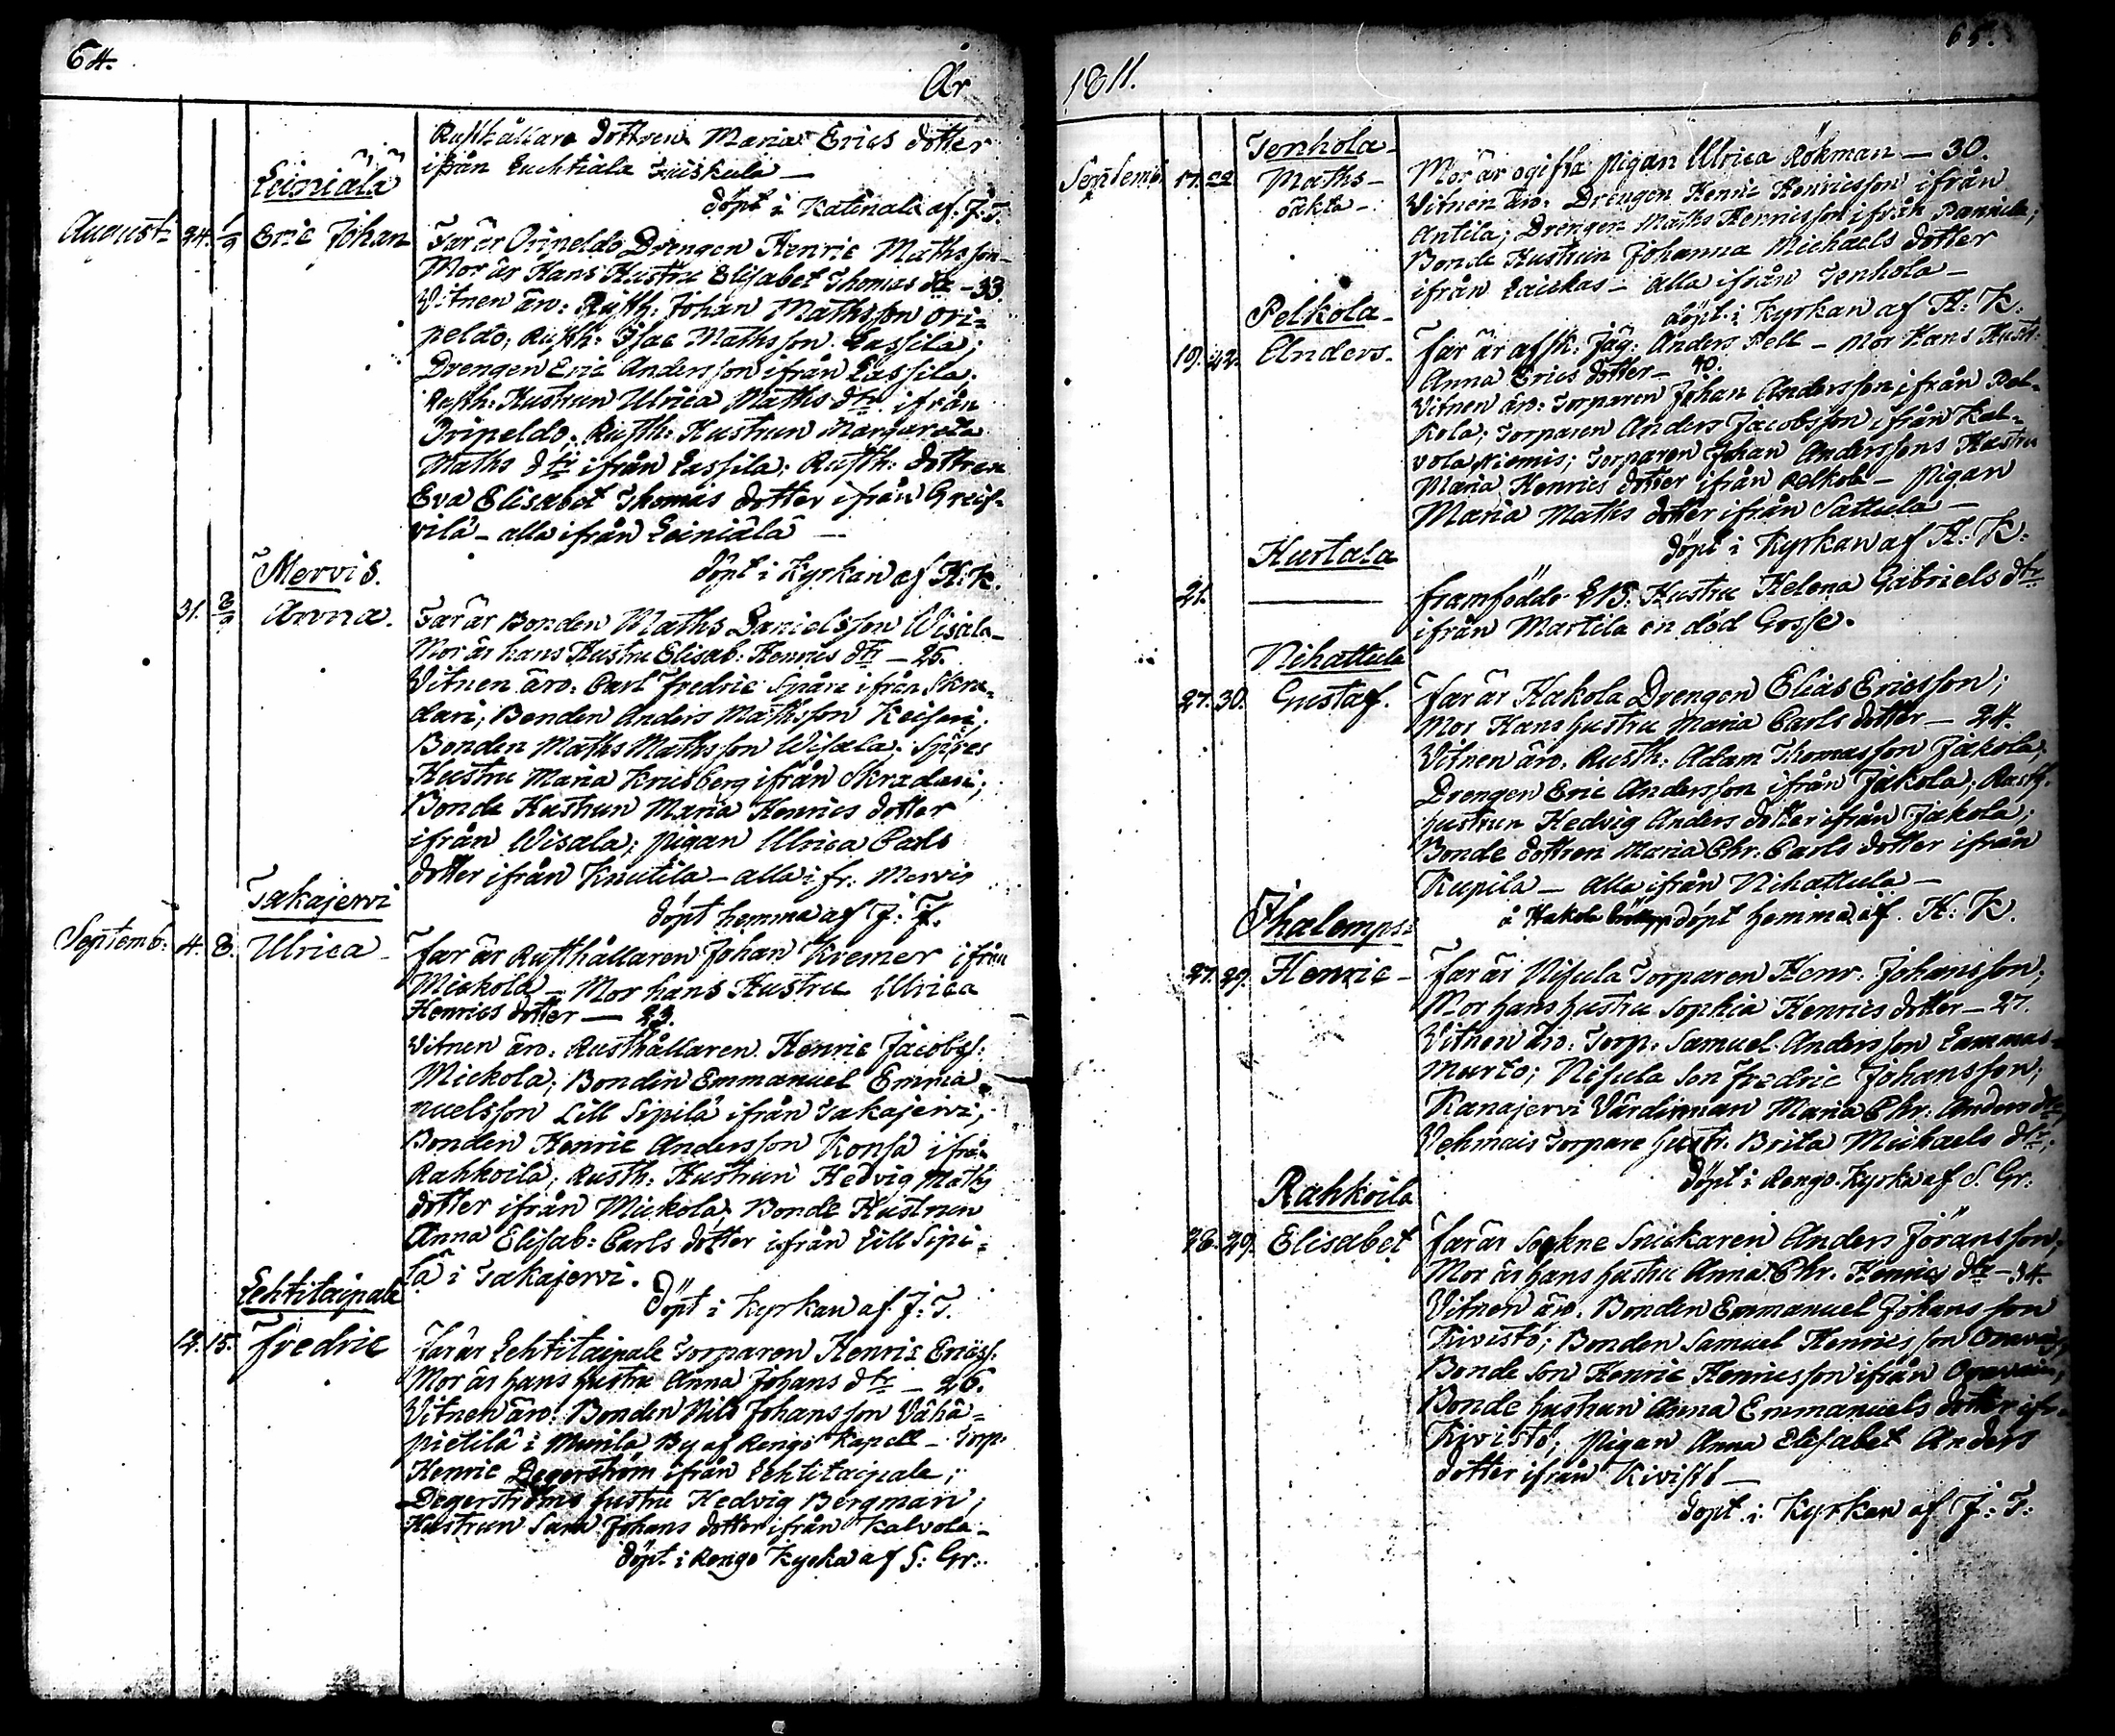 64.
År
Rusthållare dottren Maria Erics dotter
ifrån Luchtiala Tuiskula —
döpt i Katinala af J: T.
Leiniälä
August: 24. 1/9 Eric Johan
Far är Orineldo Drengen Henric Mathsson
Mor är Hans Hustru Elisabet Thomas dtr - 33.
Vitnen äro: Rusth: Johan Mathsson Ori=
neldo; Rusth: Isac Mathsson Lassila;
Drengen Eric Andersson ifrån Lassila;
Rusth: Hustrun Ulrica Maths dtr ifrån
Orineldo; Rusth: Hustrun Margareta
Maths dtr ifrån Lassila; Rusth: dottren
Eva Elisabet Thomas dotter ifrån Greis=
vilä - alla ifrån Leiniälä —
döpt i Kyrkan af H: K.
Mervis.
31. 8/9 Anna.
Far är Bonden Maths Danielsson Wisala -
Mor är hans Hustru Elisab: Henrics dtr - 25.
Vitnen äro: Carl Fredric ifrån Skra=
dari; Bonden Anders Mathsson Keisari;
Bonden Maths Mathsson Wisala;
Hustru Maria Krusberg ifrån Skradari;
Bonde Hustrun Maria Henrics dotter
ifrån Wisala; pigan Ulrica Carls
dotter ifrån Knutila - alla ifr. Mervis
döpt hemma af J: T.
Takajervi
Septemb: 4. 8. Ulrica -
Far är Rusthållaren Johan Kremer ifrån
Mickola - Mor hans Hustru Ulrica
Henrics dotter — 23.
Vitnen äro: Rusthållaren Henric Jacobss:
Mickola; Bonden Emmanuel Emma=
nuelsson Lill Sipilä ifrån Takajervi;
Bonden Henric Andersson Konsa ifrån
Rahkoila; Rusth: Hustrun Hedvig Maths
dotter ifrån Mickola; Bonde Hustrun
Anna Elisab: Carls dotter ifrån Lill Sipi=
lä i Takajervi.
döpt i Kyrkan af J: T.
Lehtitaipale
12. 15. Fredric
Far är Lehtitaipale Torparen Henric Ericss:
Mor är hans hustru Anna Johans dtr - 26.
Vitnen äro: Bonden Nils Johansson Vähä=
pietilä i Munila By af Rengo Kapell - Torp:
Henric Degerström ifrån Lehtitaipale;
Degerströms hustru Hedvig Bergman;
Hustrun Sara Johans dotter ifrån Kalvola -
döpt i Rengo Kyrka af S: Gr:
1811.
65.
Tenhola -
Septemb: 17. 22. Maths -
oäkta -
Mor är ogifta pigan Ulrica Rökman — 30.
Vitnen äro: Drengen Henric Henricsson ifrån
Antila; Drengen Maths Henricsson ifrån
Bonde Hustrun Johanna Michaels dotter
ifrån Laickas - alla ifrån Tenhola -
döpt i Kyrkan af H: K.
Pelkola -
19. 22. Anders.
Far är afsk: Jäg: Anders Pell - Mor Hans Hust:
Anna Erics dotter - 40.
Vitnen äro: Torparen Johan Andersson ifrån Pel=
kola; Torparen Anders Jacobsson ifrån Kal=
vola Niemis; Torparen Johan Anderssons Hustru
Maria Henrics dotter ifrån Pelkola - Pigan
Maria Maths dotter ifrån Sattula -
döpt i Kyrkan af H: K.
Hurtala
21. ——
framfödde Hustru Helena Gabriels dtr
ifrån Martila en död Gosse.
Nihattula
27. 30. Gustaf.
Far är Hakola Drengen Elias Ericsson;
Mor Hans hustru Maria Carls dotter — 24.
Vitnen äro: Rusth: Adam Thomasson Jakola;
Drengen Eric Andersson ifrån Jakola; Rusth:
hustrun Hedvig Anders dotter ifrån Jakola;
Bonde dottren Maria Chr: Carls dotter ifrån
Kupila - alla ifrån Nihattula -
å Hakola döpt hemma af H: K.
Ihalemps:
27. 29. Henric -
Far är Nisula Torparen Henr: Johansson;
Mor hans hustru Sophia Henrics dotter - 27.
Vitnen äro: Torp: Samuel Andersson Lammas=
Murto; Nisula Son Fredric Johansson;
Kanajervi Värdinnan Maria Chr: Anders dtr;
Vehmais Torpare hustr: Brita Michaels dtr:
döpt i Rengo Kyrka af S. Gr:
Rahkoila
28. 29. Elisabet
Far är Sockne Snickaren Anders Jöransson;
Mor är hans hustru Anna Chr: Henrics dtr - 34.
Vitnen äro: Bonden Emmanuel Johansson
Kivistö; Bonden Samuel Henricsson
Bonde Son Henric Henricsson ifrån
Bonde hustrun Anna Emmanuels dotter ifr:
Kivistö; pigan Anna Elisabet Anders
dotter ifrån Kivistö —
döpt i Kyrkan af J: T: